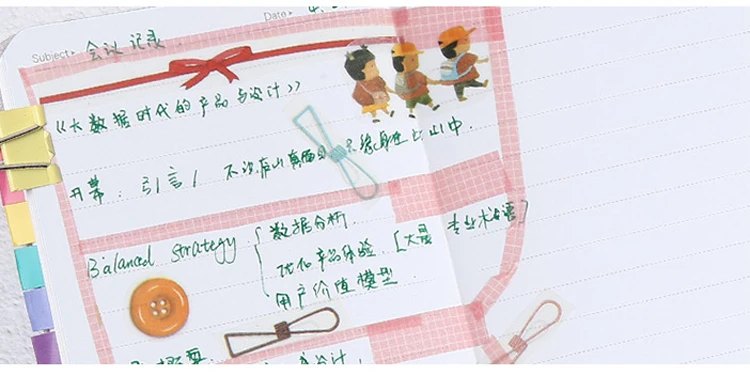 Subject: 会议记录
Date:
《大数据时代的产品与设计》
开幕: 引言/ 不识庐山真面目 只缘身在此山中.
Balanced strategy
数据分析.
优化产品体验. [大量专业术语]
用户价值模型